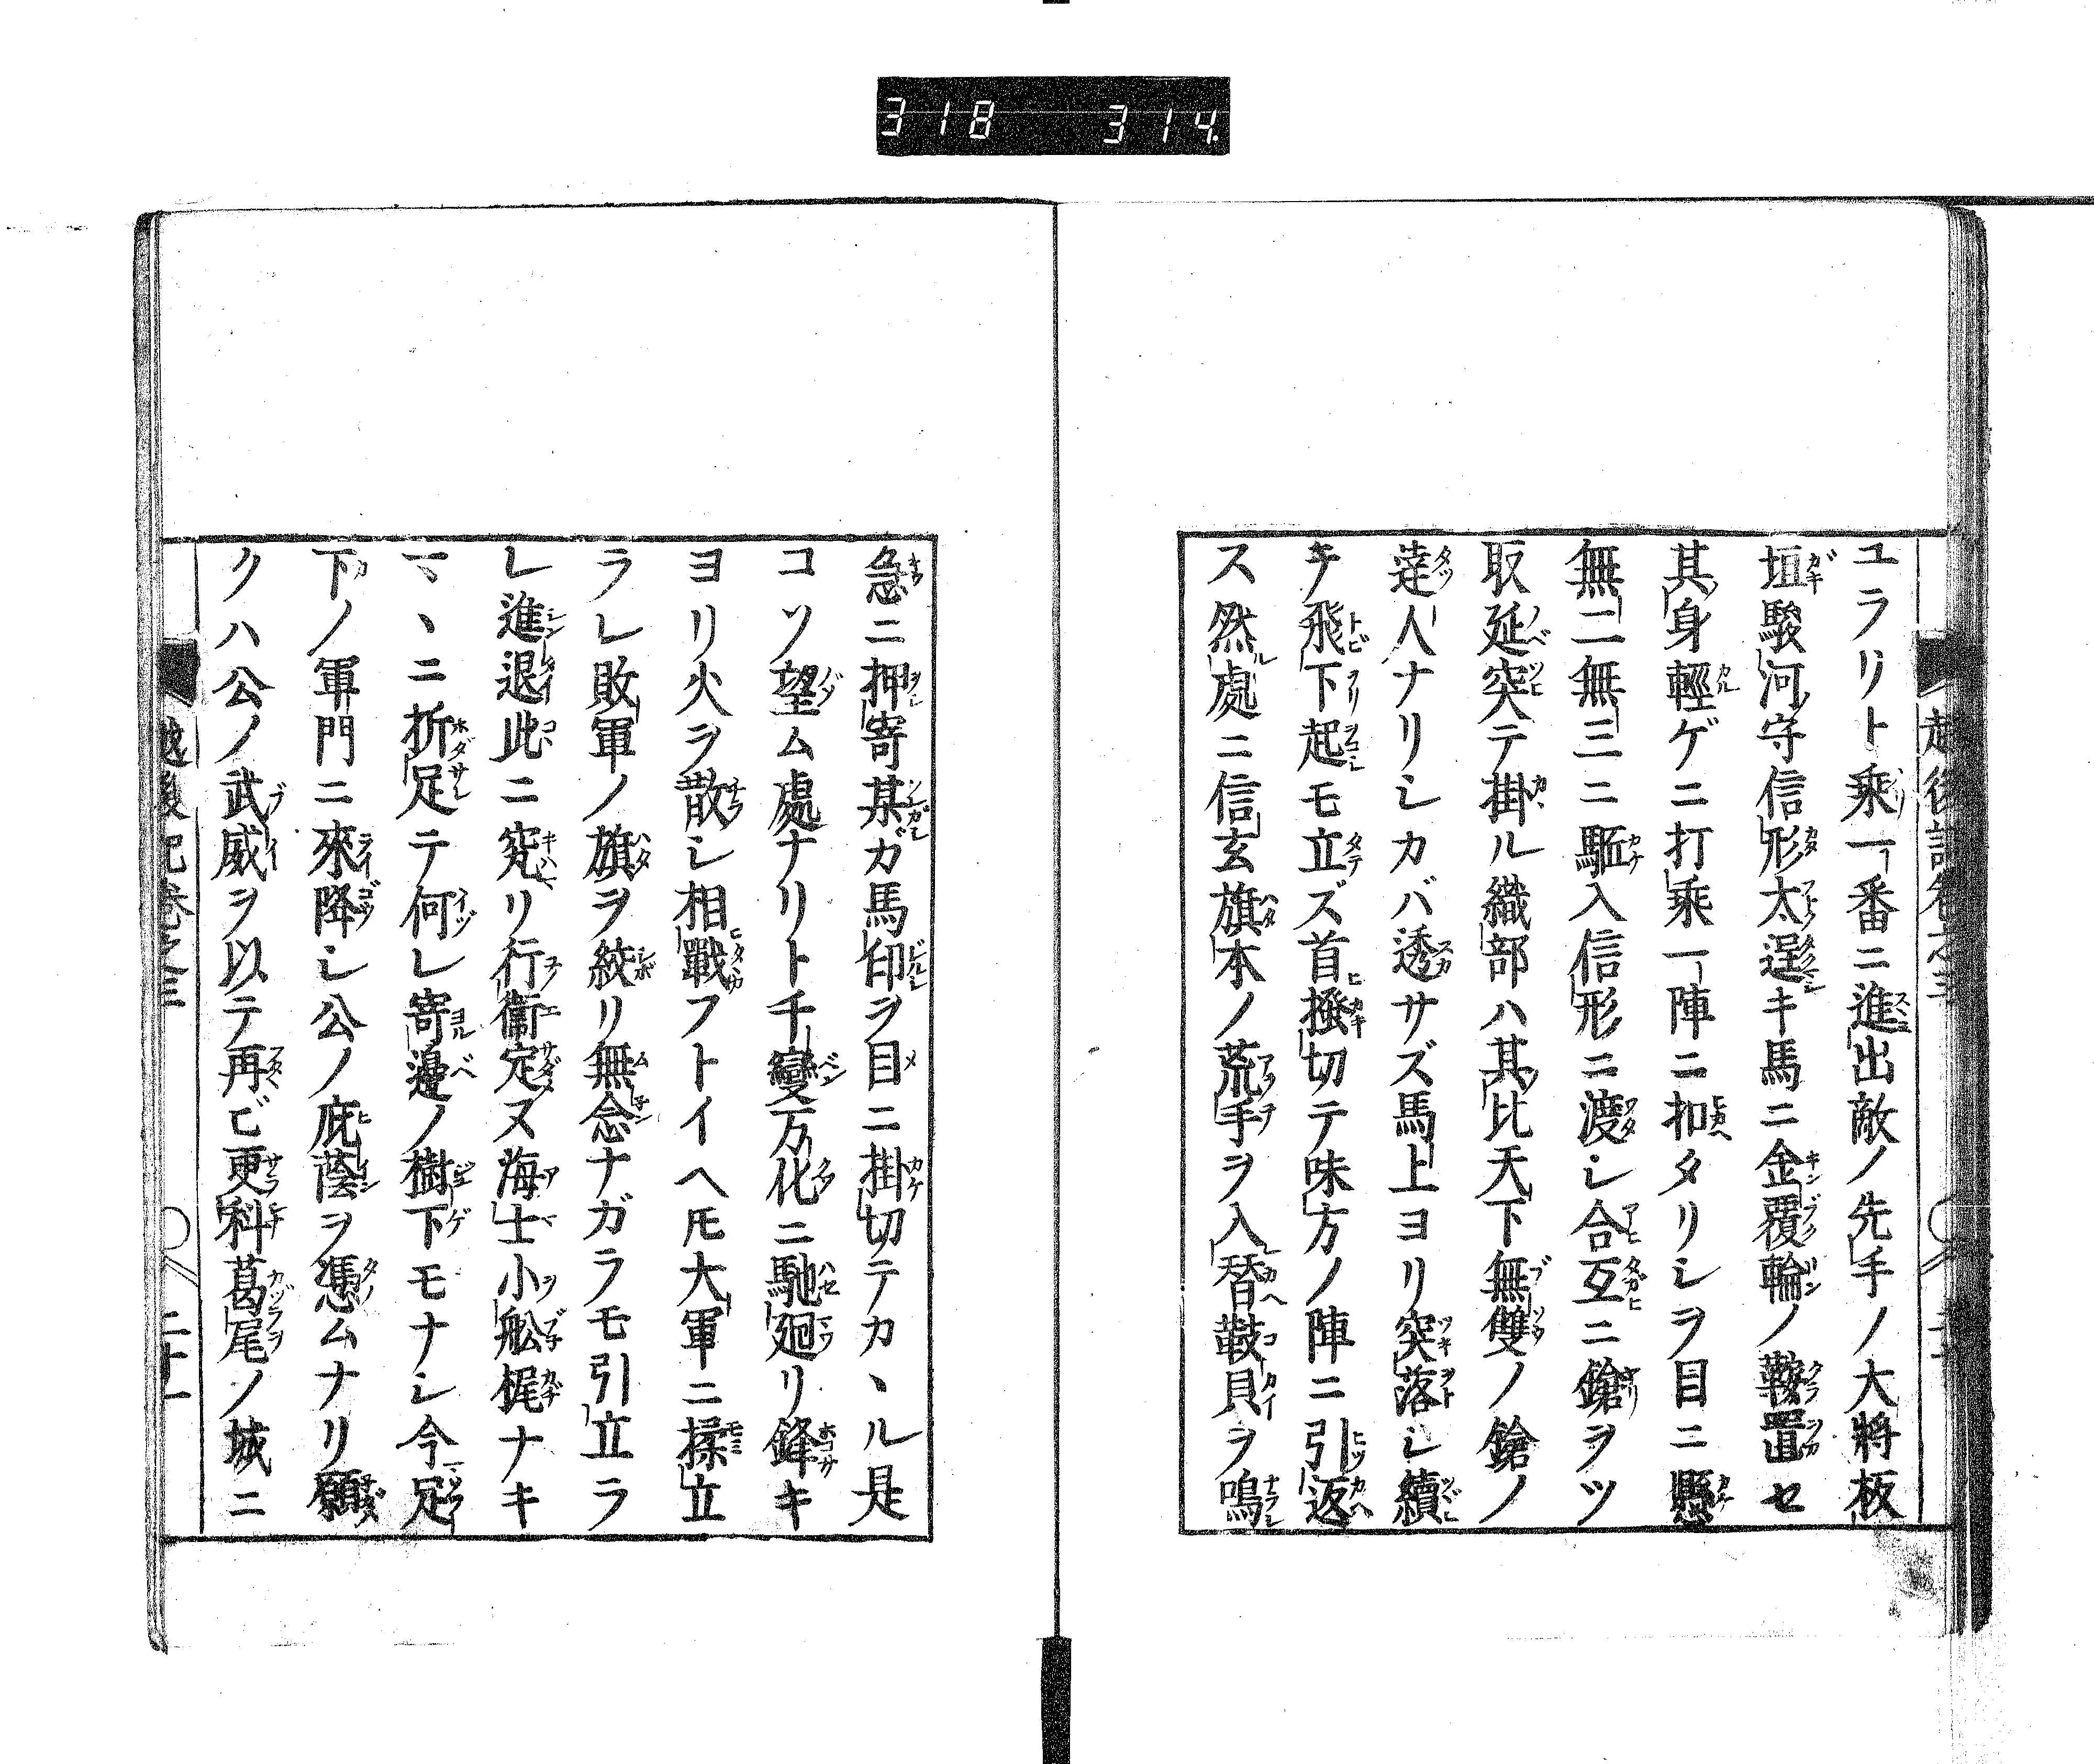 318 314
ユラリト乘一番ニ進出敵ノ先手ノ大將板
垣駿河守信形太逞キ馬ニ金覆輪ノ鞍置セ
其身輕ゲニ打乘一陣ニ扣タリシヲ目ニ懸
無二無三ニ駈入信形ニ渡シ合互ニ鎗ヲツ
取延突テ掛ル織部ハ其比天下無雙ノ鎗ノ
達人ナリシカバ透サズ馬上ヨリ突落シ續
テ飛下起モ立ズ首撥切テ味方ノ陣ニ引返
ス然處ニ信玄旗本ノ荒手ヲ入替鼓貝ヲ鳴
急ニ押寄某ガ馬印ヲ目ニ掛切テカヽル是
コソ望ム處ナリト千變万化ニ馳廻リ鋒キ
ヨリ火ヲ散シ相戰フトイヘ𪜈大軍ニ揉立
ラレ敗軍ノ旗ヲ絞リ無念ナガラモ引立ラ
レ進退此ニ究リ行衞定ヌ海士小舩梶ナキ
マヽニ折足テ何レ寄邊ノ樹下モナシ今足
下ノ軍門ニ來降シ公ノ庇蔭ヲ憑ムナリ願
クハ公ノ武威ヲ以テ再ビ更科葛尾ノ城ニ
越後記卷之三